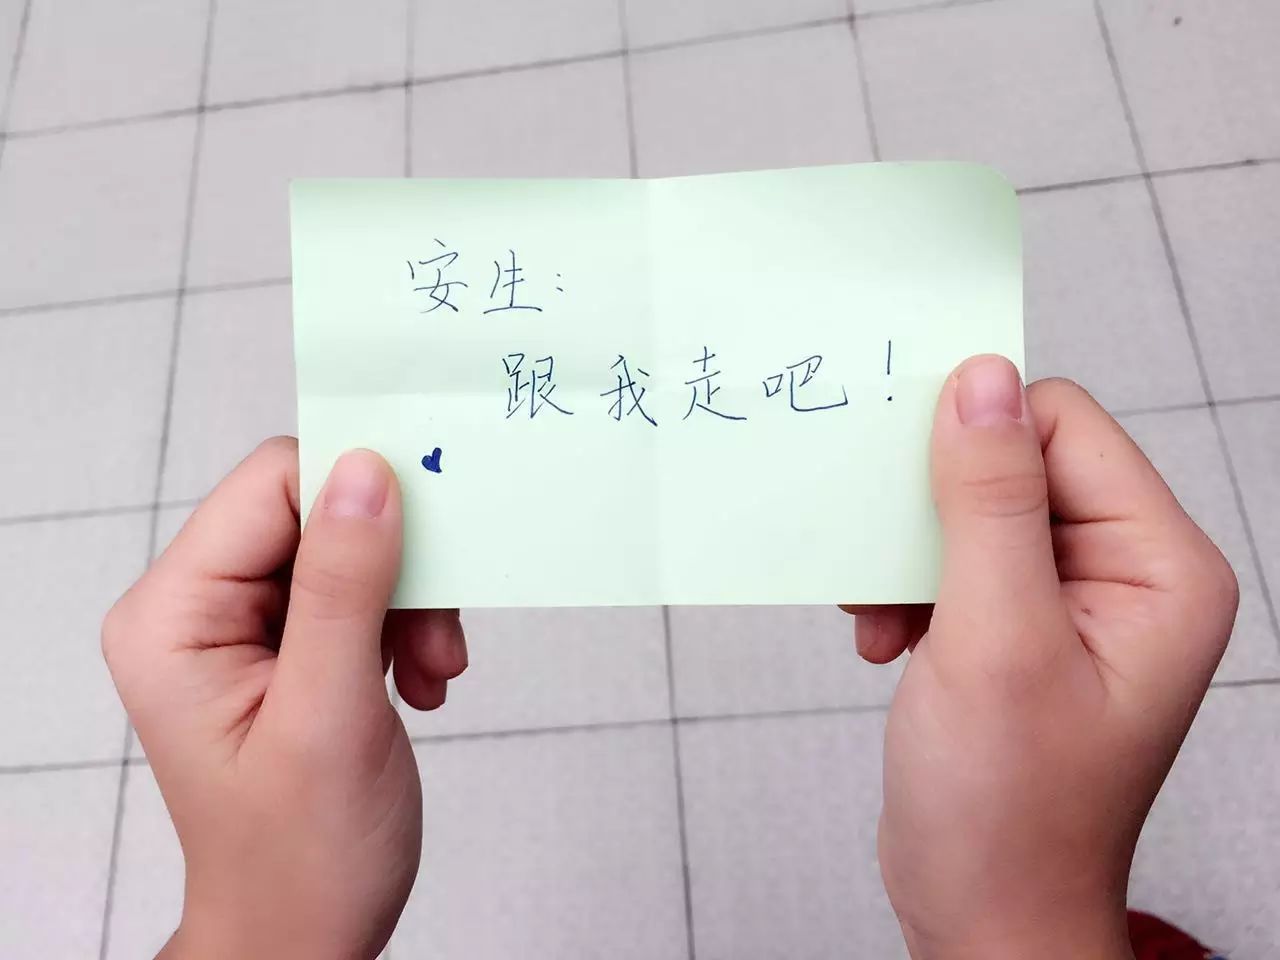 安生：
跟我走吧！